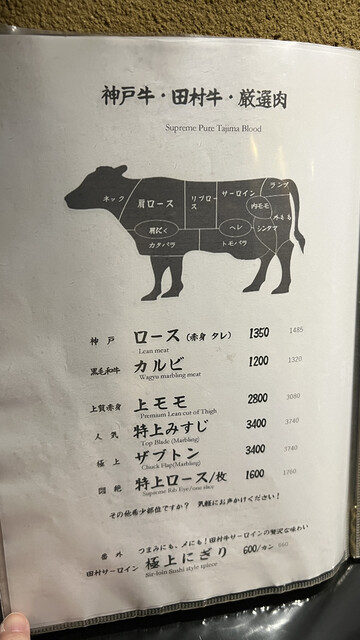 神戸牛・田村牛・厳選肉
Supreme Pure Tajima Blood
ネック
肩ロース
リブロース
サーロイン
ランプ
内モモ
外モモ
肩にく
ヒレ
シンタマ
カタバラ
トモバラ
神戸 ロース（赤身 タレ） 1350 1485
Lean meat
黒毛和牛 カルビ 1200 1320
Wagyu marbling meat
上質赤身 上モモ 2800 3080
Premium Lean cut of Thigh
人気 特上みすじ 3400 3740
Top Blade (Marbling)
極上 ザブトン 3400 3740
Chuck Flap(Marbling)
悶絶 特上ロース/枚 1600 1760
Supreme Rib Eye/one slice
その他希少部位ですか？ 気軽にお声かけください！
番外 つまみにも、〆にも！田村牛サーロインの贅沢な味わい
田村サーロイン 極上にぎり 600/カン 660
Sir-loin Sushi style 1piece